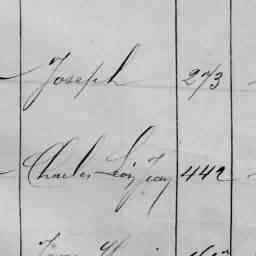 Joseph 273
Charles Léon Jean 442